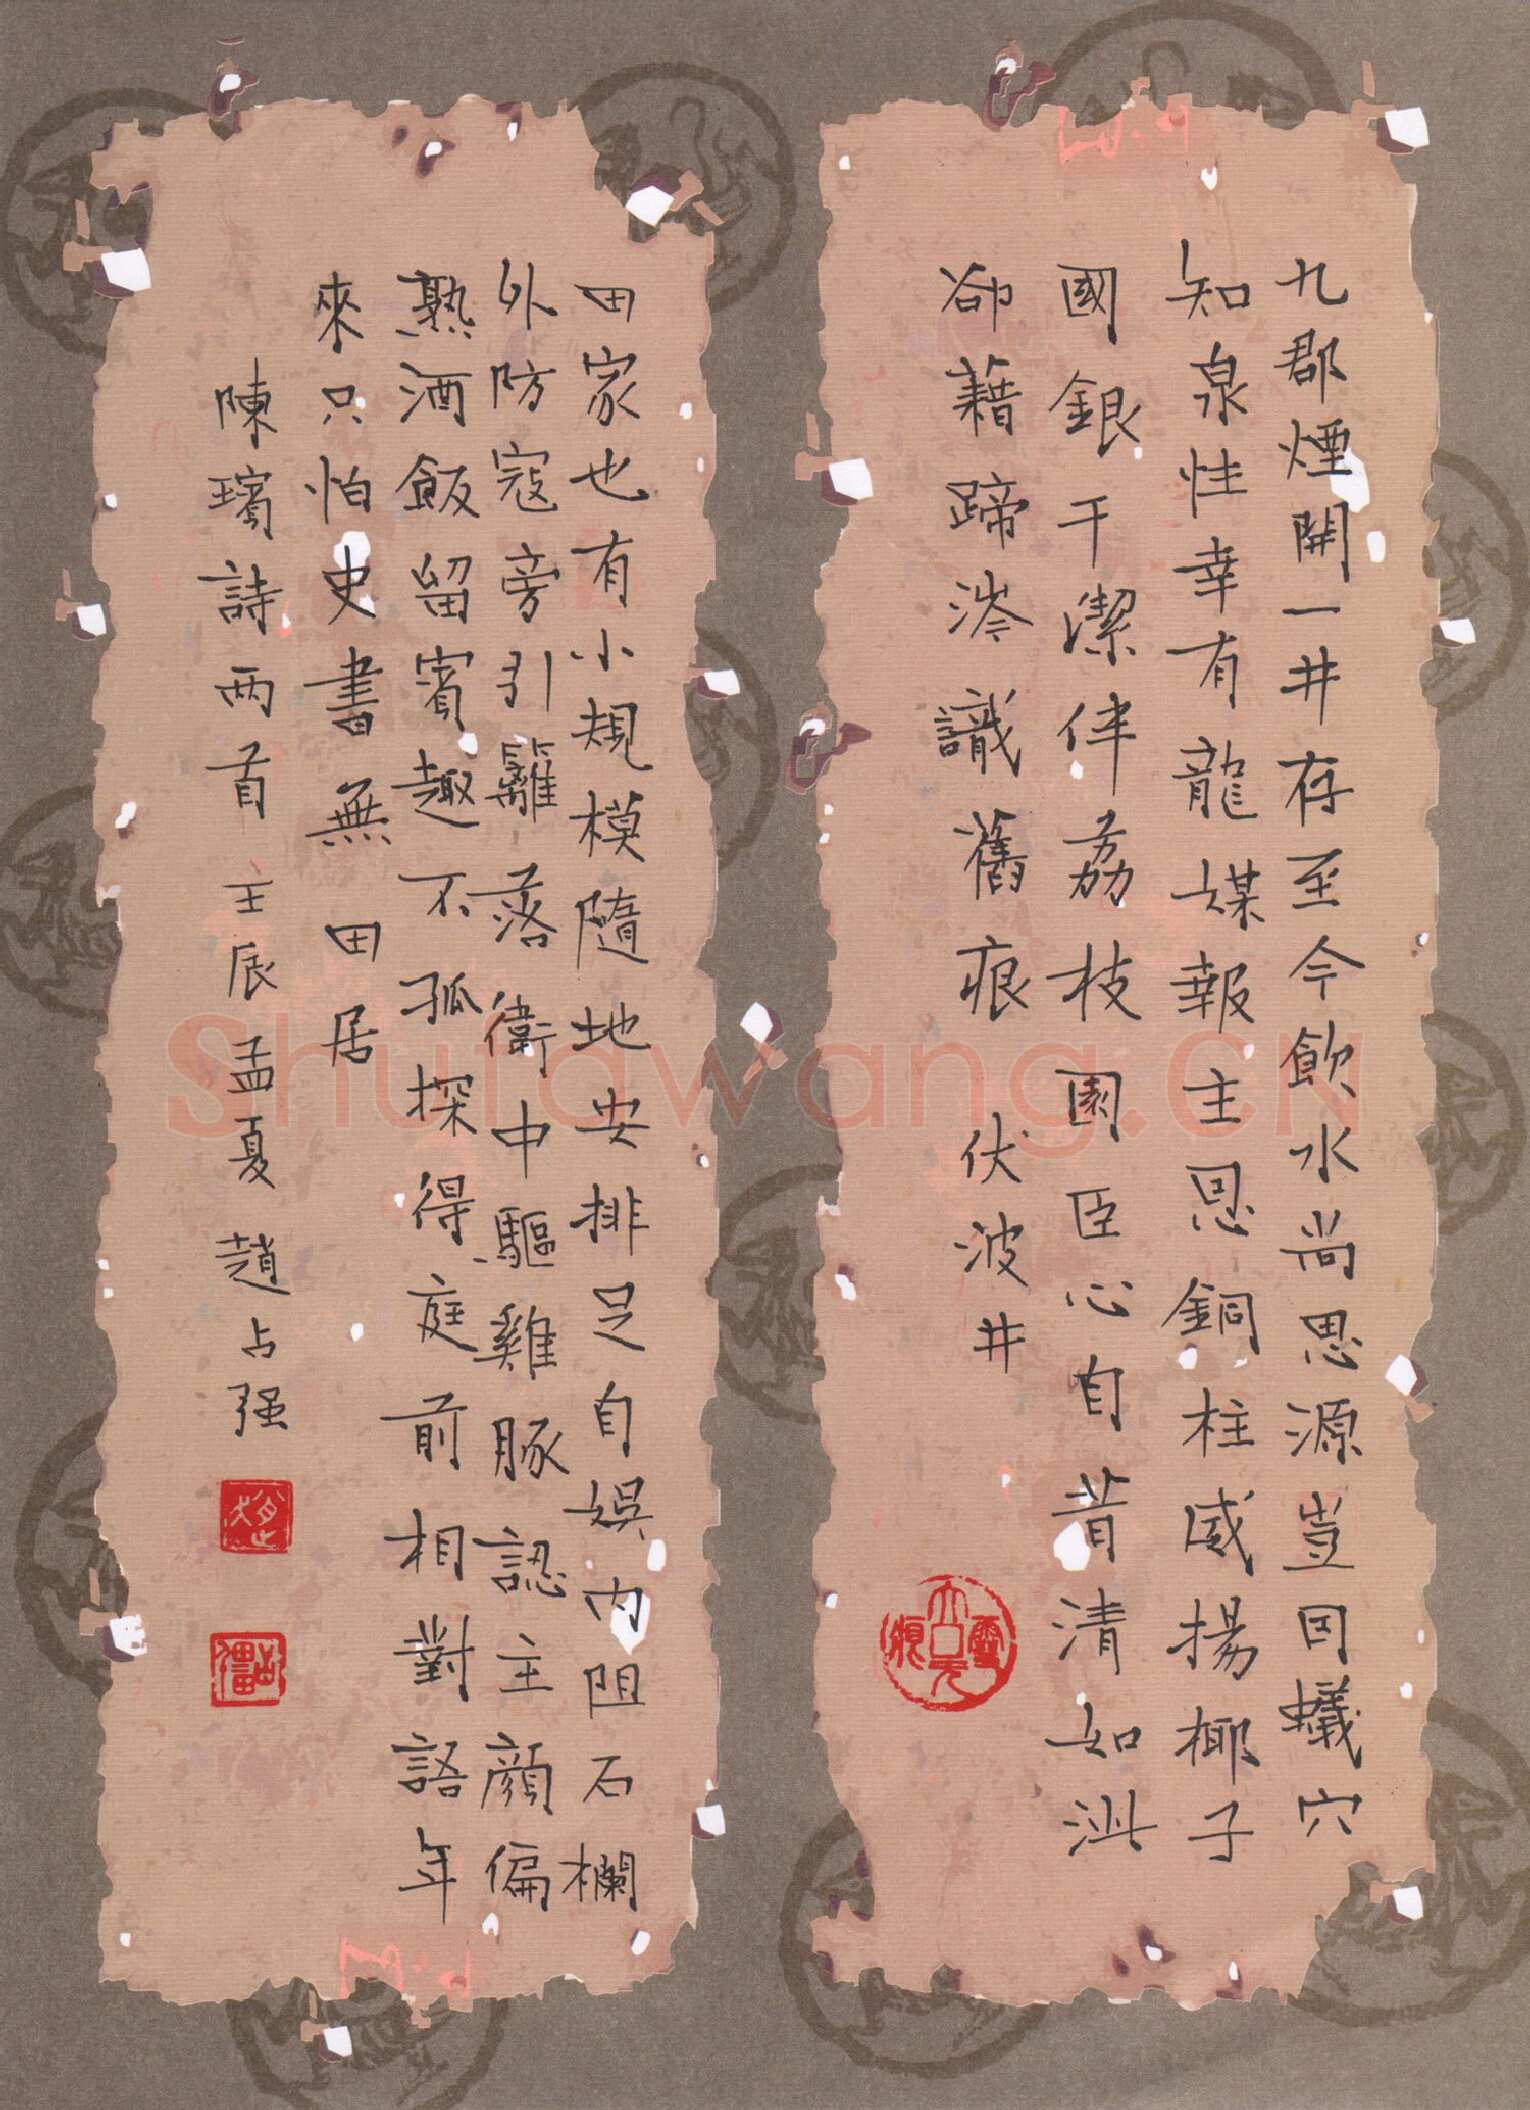 九郡煙開一井存至今飲水尚思源豈因蟻穴
知泉性幸有龍媒報主恩銅柱威揚椰子
國銀干潔伴荔枝園臣心自昔清如泚
卻藉蹄涔識舊痕 伏波井
田家也有小規模隨地安排足自娛内阻石欄
外防寇旁引籬落衛中驅雞豚認主顏偏
熟酒飯留賓趣不孤探得庭前相對語年
來只怕史書無 田居
陳璸詩兩首 壬辰孟夏 趙占强
Shufawang.cn